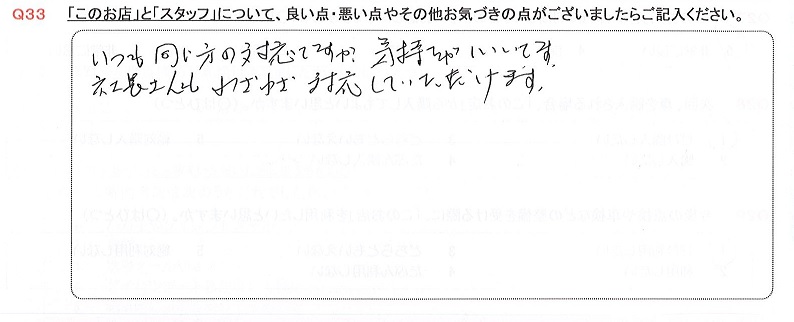 Q33 「このお店」と「スタッフ」について、良い点・悪い点やその他お気づきの点がございましたらご記入ください。
いつも同じ方の対応ですが、気持ちがいいです。
社長さんも わざわざ 対応していただけます。